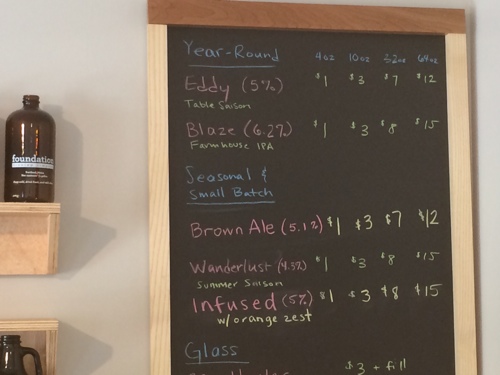 Year-Round 4oz 10oz 32oz 64oz
Eddy (5%) $1 $3 $7 $12
Table Saison
Blaze (6.2%) $1 $3 $8 $15
Farmhouse IPA
Seasonal &
Small Batch
Brown Ale (5.1%) $1 $3 $7 $12
Wanderlust (4.5%) $1 $3 $8 $15
Summer Saison
Infused (5%) $1 $3 $8 $15
w/orange zest
Glass
$3 + fill
foundation